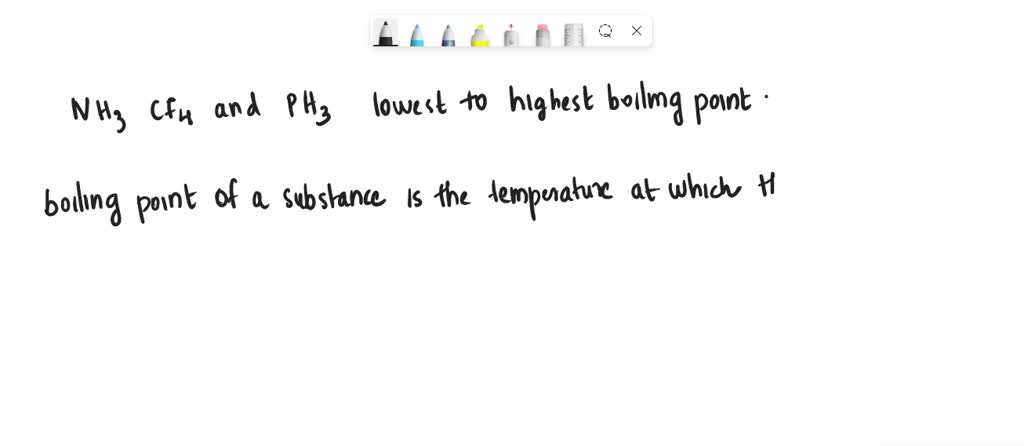 NH3 CF4 and PH3 lowest to highest boiling point.
boiling point of a substance is the temperature at which H